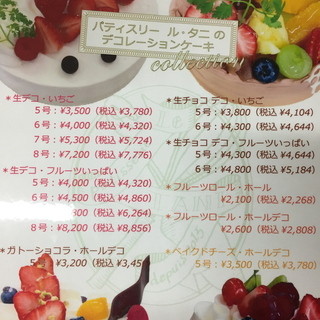 パティスリー ル・タニ の
デコレーションケーキ
collection
＊生デコ・いちご
5号：¥3,500（税込 ¥3,780）
6号：¥4,000（税込 ¥4,320）
7号：¥5,300（税込 ¥5,724）
8号：¥7,200（税込 ¥7,776）
＊生デコ・フルーツいっぱい
5号：¥4,000（税込 ¥4,320）
6号：¥4,500（税込 ¥4,860）
¥5,800（税込 ¥6,264）
8号：¥8,200（税込 ¥8,856）
＊ガトーショコラ・ホールデコ
5号：¥3,200（税込 ¥3,45
＊生チョコ デコ・いちご
5号：¥3,800（税込 ¥4,104）
6号：¥4,300（税込 ¥4,644）
＊生チョコ デコ・フルーツいっぱい
5号：¥4,300（税込 ¥4,644）
6号：¥4,800（税込 ¥5,184）
＊フルーツロール・ホール
¥2,100（税込 ¥2,268）
＊フルーツロール・ホールデコ
¥2,600（税込 ¥2,808）
＊ベイクドチーズ・ホールデコ
5号：¥3,500（税込 ¥3,780）